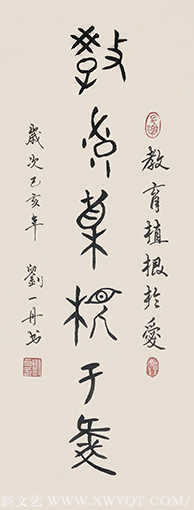 教育植根於愛
教育植根于愛
歲次己亥年
劉一丹書
新文艺 WWW.XWYQT.COM